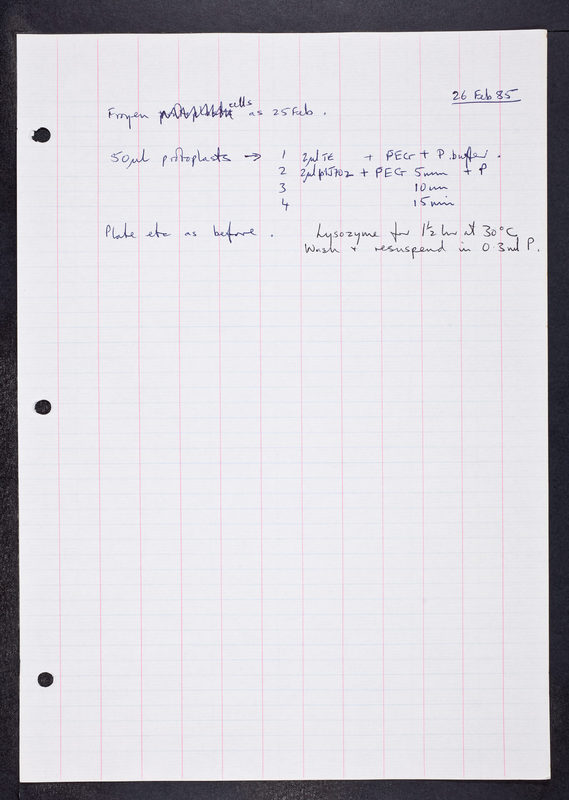 26 Feb 85
Frozen cells as 25 Feb.
50µl protoplasts → 1 2µl TE + PEG + P. buffer.
2 2µl pIJ702 + PEG 5min + P
3 10min
4 15min
Plate etc as before. Lysozyme for 1½ hr at 30°C
Wash + resuspend in 0.3ml P.